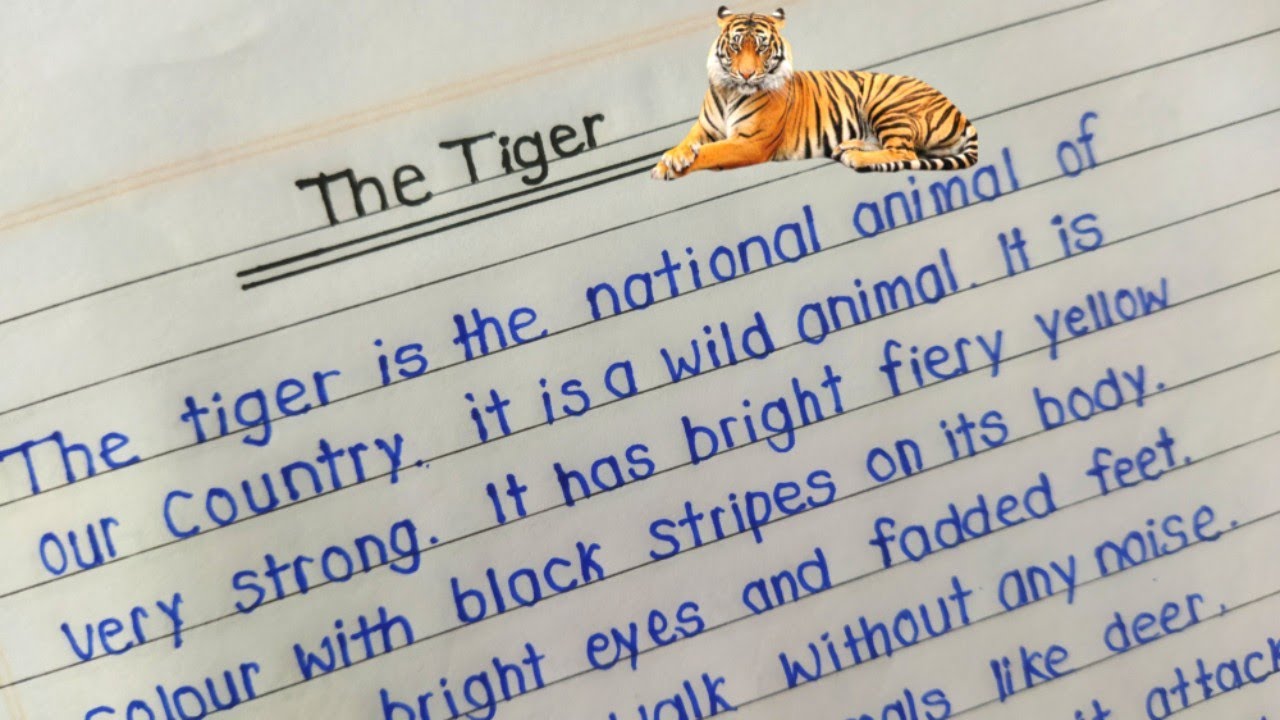 The Tiger
The tiger is the national animal of
our country. it is a wild animal. It is
very strong. It has bright fiery yellow
colour with black stripes on its body.
bright eyes and fadded feet.
walk without any noise.
like deer.
attack